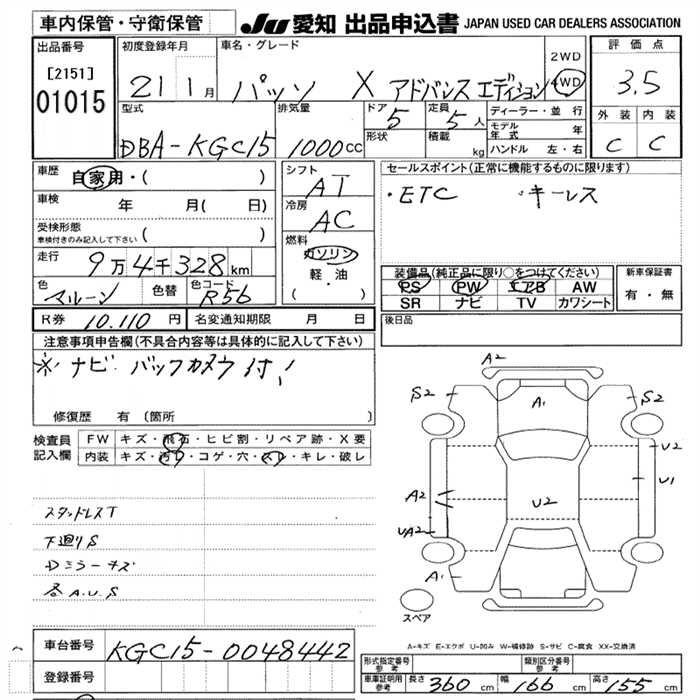 車内保管・守衛保管
JU 愛知 出品申込書 JAPAN USED CAR DEALERS ASSOCIATION
出品番号
[2151]
01015
初度登録年月
21 1月
車名・グレード
パッソ X アドバンスエディション
2WD
4WD
評価点
3.5
外装 内装
C C
型式
DBA-KGC15
排気量
1000cc
ドア
5
形状
定員
5人
積載
kg
ディーラー・並行
モデル年式 年
ハンドル 左・右
車歴
自家用・( )
車検 年 月( 日)
受検形態
車検付きのみ記入して下さい ( )
走行 9万4千328km
色 マルーン
色替
色コード R56
シフト AT
冷房 AC
燃料
ガソリン
軽・油
( )
セールスポイント(正常に機能するものに限ります)
・ETC ・キーレス
装備品(純正品に限り○をつけてください)
PS PW エアB AW
SR ナビ TV カワシート
新車保証書
有・無
R券 10.110円
名変通知期限 月 日
後日品
注意事項申告欄(不具合内容等は具体的に記入して下さい)
※ナビ バックカメラ付!
修復歴 有 〔箇所
検査員記入欄
FW キズ・飛石・ヒビ割・リペア跡・X要
内装 キズ・汚レ・コゲ・穴・スレ・キレ・破レ
スタッドレスT
下廻りS
Dミラーキズ
各A.U.S
A2
S2
A1
S2
U2
U1
A2
U2
UA2
A1
スペア
A-キズ E-エクボ U-凹み W-補修跡 S-サビ C-腐食 XX-交換済
車台番号 KGC15-0048442
登録番号
形式指定番号
参考
類別区分番号
参考
車庫証明用
参考
長さ 360cm 幅 166cm 高さ 155cm